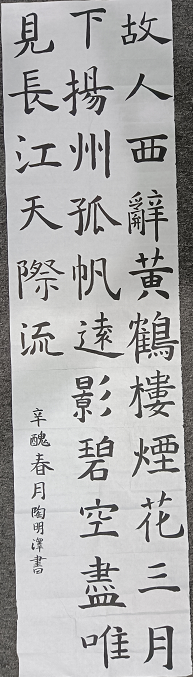 故人西辭黃鶴樓煙花三月
下揚州孤帆遠影碧空盡唯
見長江天際流
辛醜春月陶明澤書